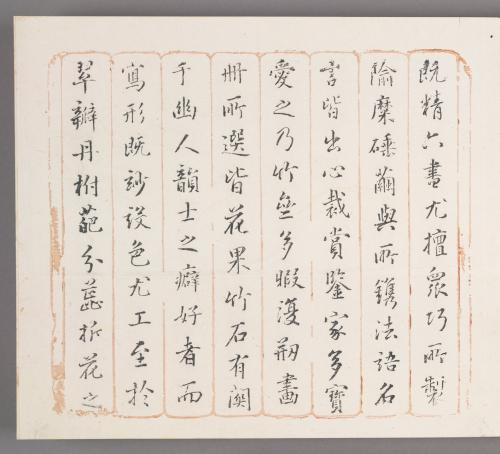 既精六書尤擅眾巧所製
隃糜硾繭與所鐫法語名
言皆出心裁賞鑒家多寶
愛之乃竹壘多暇復刱畫
冊所選皆花果竹石有關
于幽人韻士之癖好者而
寫形既玅設色尤工至於
翠瓣丹柎葩分蕋折花之